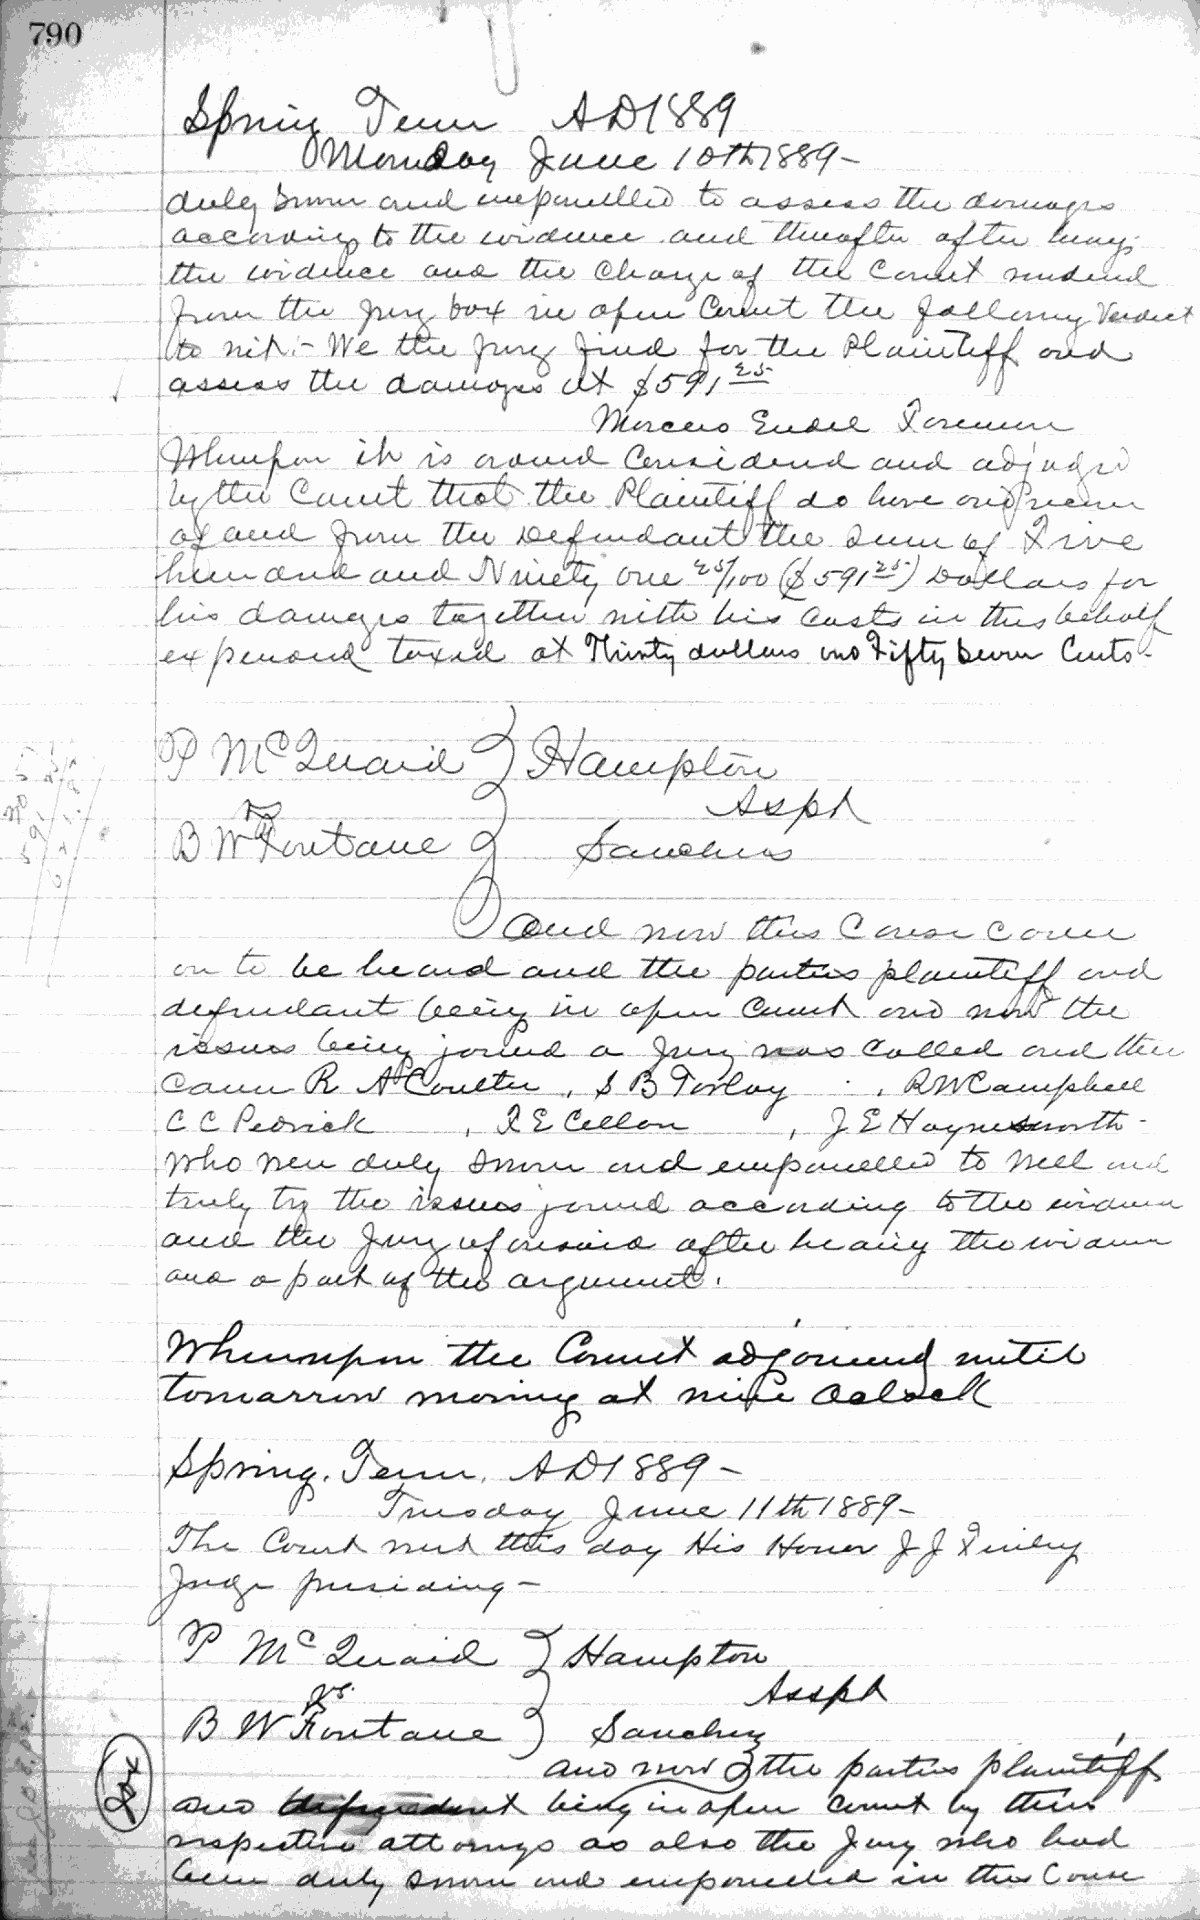 790
Spring Term AD 1889
Monday June 10th 1889-
duly sworn and empanelled to assess the damages
according to the evidence and thereafter after hearg
the evidence and the Charge of the Court rendered
from the Jury box in open Court the following Verdict
to wit:- We the Jury find for the Plaintiff and
assess the damages at $591 25
Marcus Endel Foreman
Whereupon it is ordered Considered and adjudged
by the Court that the Plaintiff do have and recover
of and from the Defendant the Sum of Five
hundred and Ninety one 25/100 ($591 25) Dollars for
his damages together with his Costs in this behalf
expended taxed at Thirty dollars and Fifty seven Cents-
P McQuaid } Hampton
vs Asspt
B W Fontane } Sanchez
and now this Cause came
on to be heard and the parties plaintiff and
defendant being in open Court and now the
issues being joined a Jury was Called and then
came R A Coulter, S B Torlay, R W Campbell
C C Pedrick, F E Cellon, J E Haynesworth-
who were duly sworn and empanelled to well and
truly try the issues joined according to the evidence
and the Jury aforesaid after hearing the evidence
and a part of the argument.
Whereupon the Court adjourned until
tomarrow morning at nine Oclock
Spring Term. AD 1889-
Tuesday June 11th 1889-
The Court met this day His Honor J J Finley
Judge presiding-
P McQuaid } Hampton
vs. Asspt
B W Fontane } Sanchez
and now the parties plaintiff
and defendant being in open Court by their
respective attorneys as also the Jury who had
been duly sworn and empaneled in this Cause